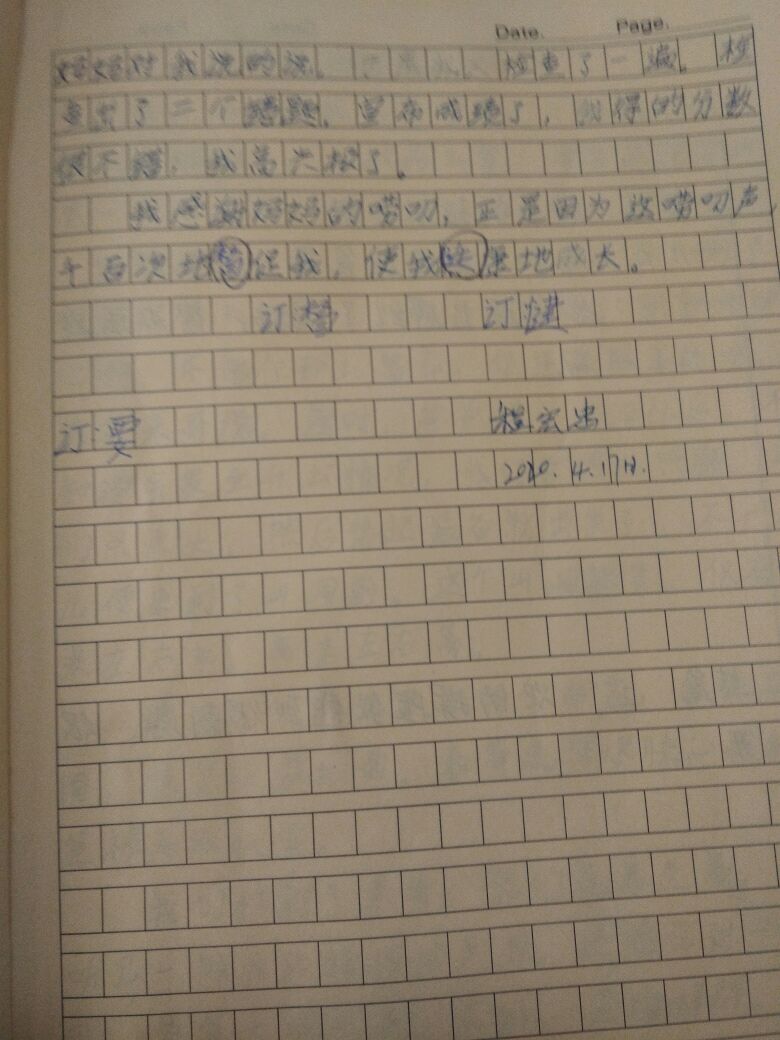 Date. Page.
妈妈对我说的话. 检查了一遍. 检
查出了二个错题. 宣布成绩了, 我得的分数
很不错. 我高兴极了。
我感谢妈妈的唠叨, 正是因为这唠叨声,
千百次地督促我, 使我 地成长。
订督 订
订:要
程宏
2020.4.17日.